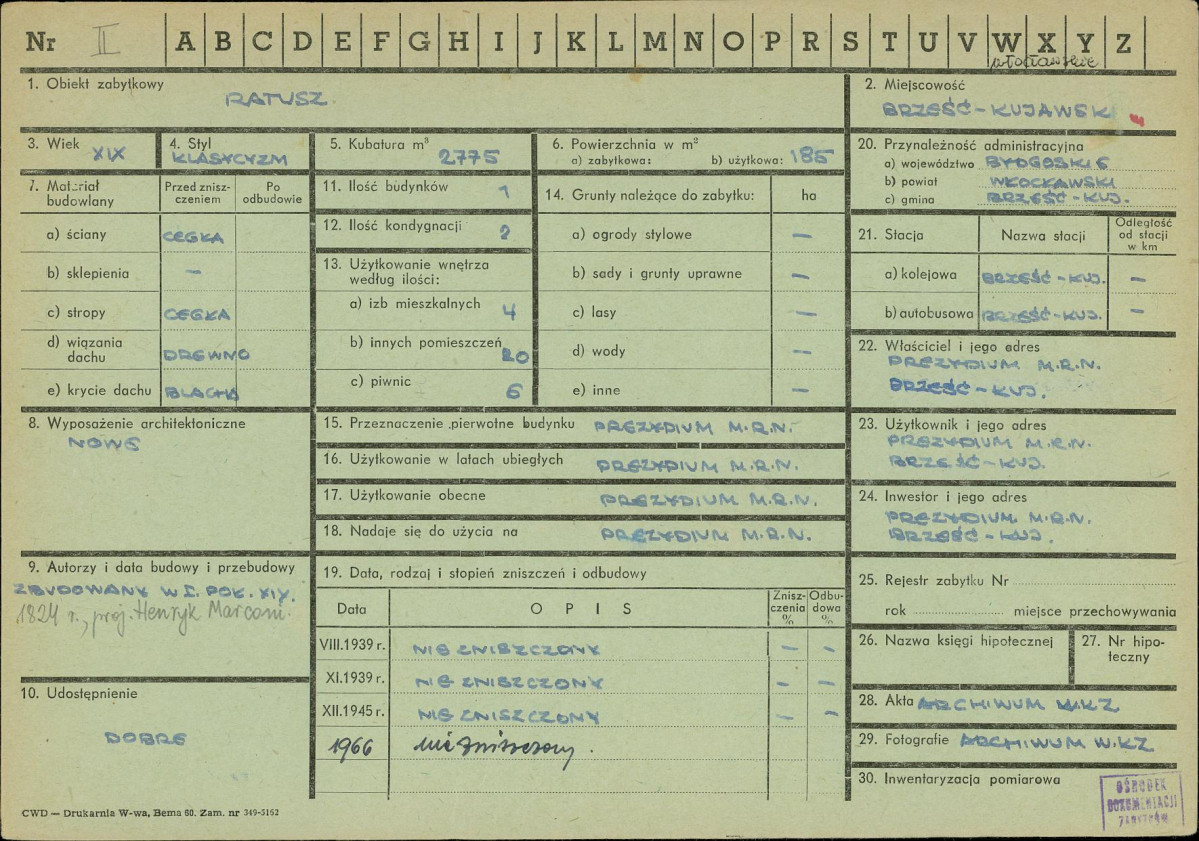 Nr II A B C D E F G H I J K L M N O P R S T U V W X Y Z
włocławskie
1. Obiekt zabytkowy
RATUSZ
2. Miejscowość
BRZEŚĆ-KUJAWSKI
3. Wiek XIX
4. Styl KLASYCYZM
5. Kubatura m³ 2775
6. Powierzchnia w m²
a) zabytkowa: b) użytkowa: 185
20. Przynależność administracyjna
a) województwo BYDGOSKIE
b) powiat WŁOCŁAWSKI
c) gmina BRZEŚĆ-KUJ.
7. Materiał budowlany
Przed zniszczeniem
Po odbudowie
a) ściany CEGŁA
b) sklepienia —
c) stropy CEGŁA
d) wiązania dachu DREWNO
e) krycie dachu BLACHA
11. Ilość budynków 1
12. Ilość kondygnacji 2
13. Użytkowanie wnętrza
według ilości:
a) izb mieszkalnych 4
b) innych pomieszczeń 20
c) piwnic 6
14. Grunty należące do zabytku: ha
a) ogrody stylowe —
b) sady i grunty uprawne —
c) lasy —
d) wody —
e) inne —
21. Stacja Nazwa stacji Odległość od stacji w km
a) kolejowa BRZEŚĆ-KUJ. —
b) autobusowa BRZEŚĆ-KUJ. —
22. Właściciel i jego adres
PREZYDIUM M.R.N.
BRZEŚĆ-KUJ.
8. Wyposażenie architektoniczne
NOWE
15. Przeznaczenie pierwotne budynku PREZYDIUM M.R.N.
16. Użytkowanie w latach ubiegłych PREZYDIUM M.R.N.
17. Użytkowanie obecne PREZYDIUM M.R.N.
18. Nadaje się do użycia na PREZYDIUM M.R.N.
23. Użytkownik i jego adres
PREZYDIUM M.R.N.
BRZEŚĆ-KUJ.
24. Inwestor i jego adres
PREZYDIUM M.R.N.
BRZEŚĆ-KUJ.
9. Autorzy i data budowy i przebudowy
ZBUDOWANY W I. POŁ. XIX.
1824 r., proj. Henryk Marconi.
10. Udostępnienie
DOBRE
19. Data, rodzaj i stopień zniszczeń i odbudowy
Data OPIS Zniszczenia % Odbudowa %
VIII.1939 r. NIE ZNISZCZONY — —
XI.1939 r. NIE ZNISZCZONY — —
XII.1945 r. NIE ZNISZCZONY — —
1966 nie zniszczony.
25. Rejestr zabytku Nr
rok miejsce przechowywania
26. Nazwa księgi hipotecznej
27. Nr hipoteczny
28. Akta ARCHIWUM W.K.Z.
29. Fotografie ARCHIWUM W.K.Z.
30. Inwentaryzacja pomiarowa
OŚRODEK
DOKUMENTACJI
ZABYTKÓW
CWD — Drukarnia W-wa, Bema 60. Zam. nr 349-5162